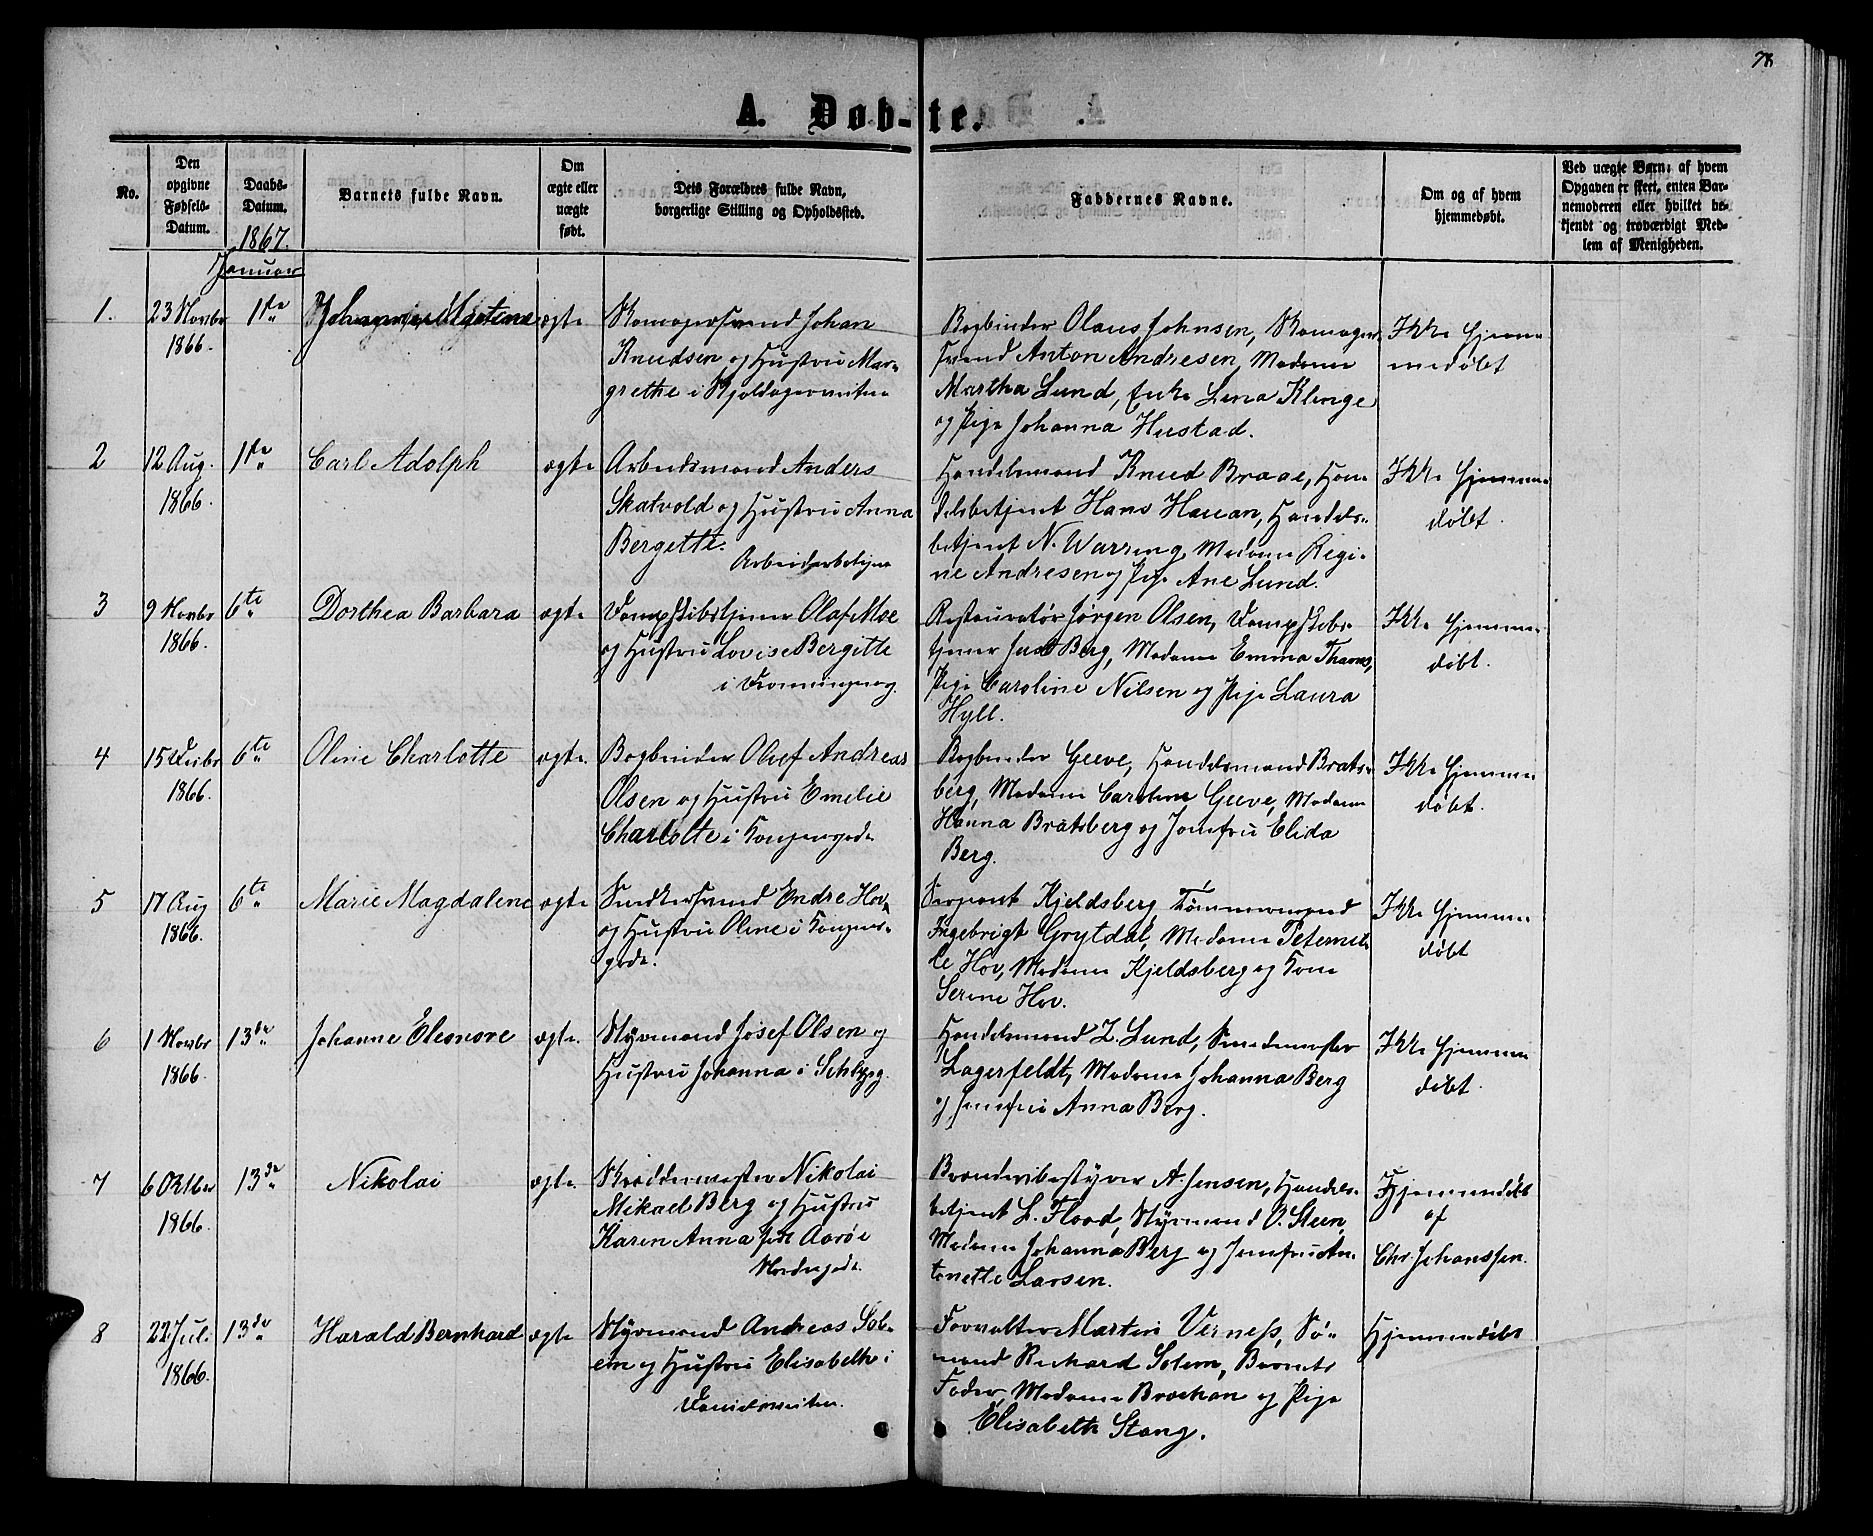 78
A. Døb-te.
No.
Den
opgivne
Fødsels-
Datum.
Daabs-
Datum.
1867.
Januar
Barnets fulde Navn.
Om
ægte eller
uægte
født.
Dets Forældres fulde Navn,
borgerlige Stilling og Opholdssted.
Faddernes Navne.
Om og af hvem
hjemmedøbt.
Ved uægte Børn: af hvem
Opgaven er skeet, enten Bar-
nemoderen eller hvilket be-
kjendt og troværdigt Med-
lem af Menigheden.
1.
23 Novbr
1866.
1ste
ægte
Skomagersvend Johan
Knudsen og Hustru Mar-
grethe i Skjoldagerveiten
Bogbinder Olaus Johnsen, Skomager-
svend Anton Andresen, Madame
Martha Lund, Enke Lena Klinge
og Pige Johanna Hustad.
Ikke hjem-
medøbt
2
12 Aug.
1866.
1ste
Carl Adolph
ægte
Arbeidsmand Anders
Skatvold og Hustru Anna
Bergette.
Handelsmand Knud Braae, Han-
delsbetjent Hans Hauan, Handels-
betjent N. Warring, Madame Regi-
ne Andresen og Pige Ane Lund.
Ikke hjemme-
døbt.
3
9 Novbr
1866.
6te
Dorthea Barbara
ægte
Dampskibstjener Olaf Moe
og Hustru Lovise Bergitte
i Dronningensg.
Restauratør Jørgen Olsen, Dampskibs-
tjener Just Berg, Madame Emma Thams,
Pige Caroline Nilsen og Pige Laura
Hyll.
Ikke hjemme-
døbt.
4
15 Decbr
1866.
6te
Oline Charlotte
ægte.
Bogbinder Olaf Andreas
Olsen og Hustru Emelie
Charlotte i Kongensgade
Bogbinder Geeve, Handelsmand Brats-
berg, Madame Caroline Geeve, Madame
Hanna Bratsberg og Jomfru Elida
Berg.
Ikke hjemme-
døbt.
5
17 Aug
1866.
6te
Marie Magdalene
ægte
Snedkersvend Endre Hov
og Hustru Oline i Kongens-
gade.
Sergeant Kjeldsberg Tømmermand
Ingebrigt Grytdal, Madame Peternel-
le Hov, Madame Kjeldsberg og Kone
Serine Hov.
Ikke hjemme-
døbt
6
1 Novbr
1866.
13de
Johanne Eleonore
ægte.
Styrmand Josef Olsen og
Hustru Johanna i
Handelsmand Z. Lund, Smedemester
Lagerfeldt, Madame Johanna Berg
og Jomfru Anna Berg.
Ikke hjemme-
døbt.
7
6 Oktber
1866.
13de
Nikolai
ægte.
Skræddermester Nikolai
Mikael Berg og Hustru
Karen Anna født Aarøe
Nordregade.
Brænderibestyrer A. Jensen, Handels-
betjent L. Flood, Styrmand O. Steen,
Madame Johanna Berg og Jomfru An-
tonette Larsen.
Hjemmedøbt
af
Chr. Johanssen.
8
22 Juli
1866.
13de
Harald Bernhard
ægte
Styrmand Andreas Sol-
em og Hustru Elisabeth i
Forvalter Martin Verness, Sø-
mand Richard Solem, Barnets
Fader, Madame Brækan og Pige
Elisabeth Stang.
Hjemmedøbt